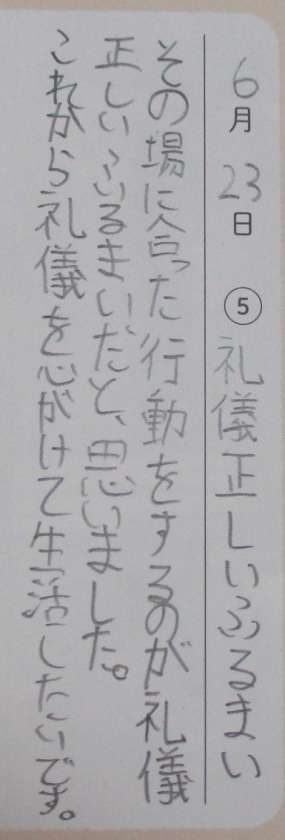 6月23日 ⑤ 礼儀正しいふるまい
その場に合った行動をするのが礼儀
正しいふるまいだと、思いました。
これから礼儀を心がけて生活したいです。